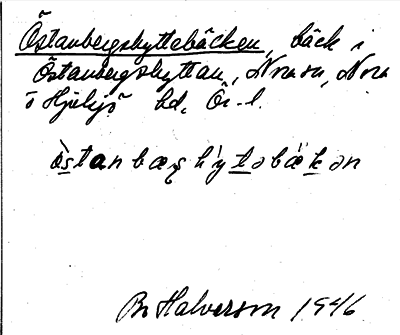 Östanbergshyttebäcken, bäck i
Östanbergshyttan, Nora sn, Nora
o Hjulsjö hd, Ör. l.
ö̀stanbæʂhy̍təbäkən
Br Halverson 1946